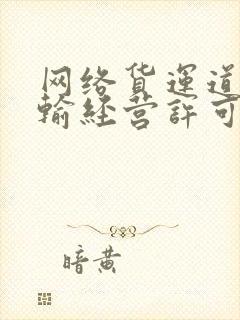 网络货運道
輸経营許可
暗黄